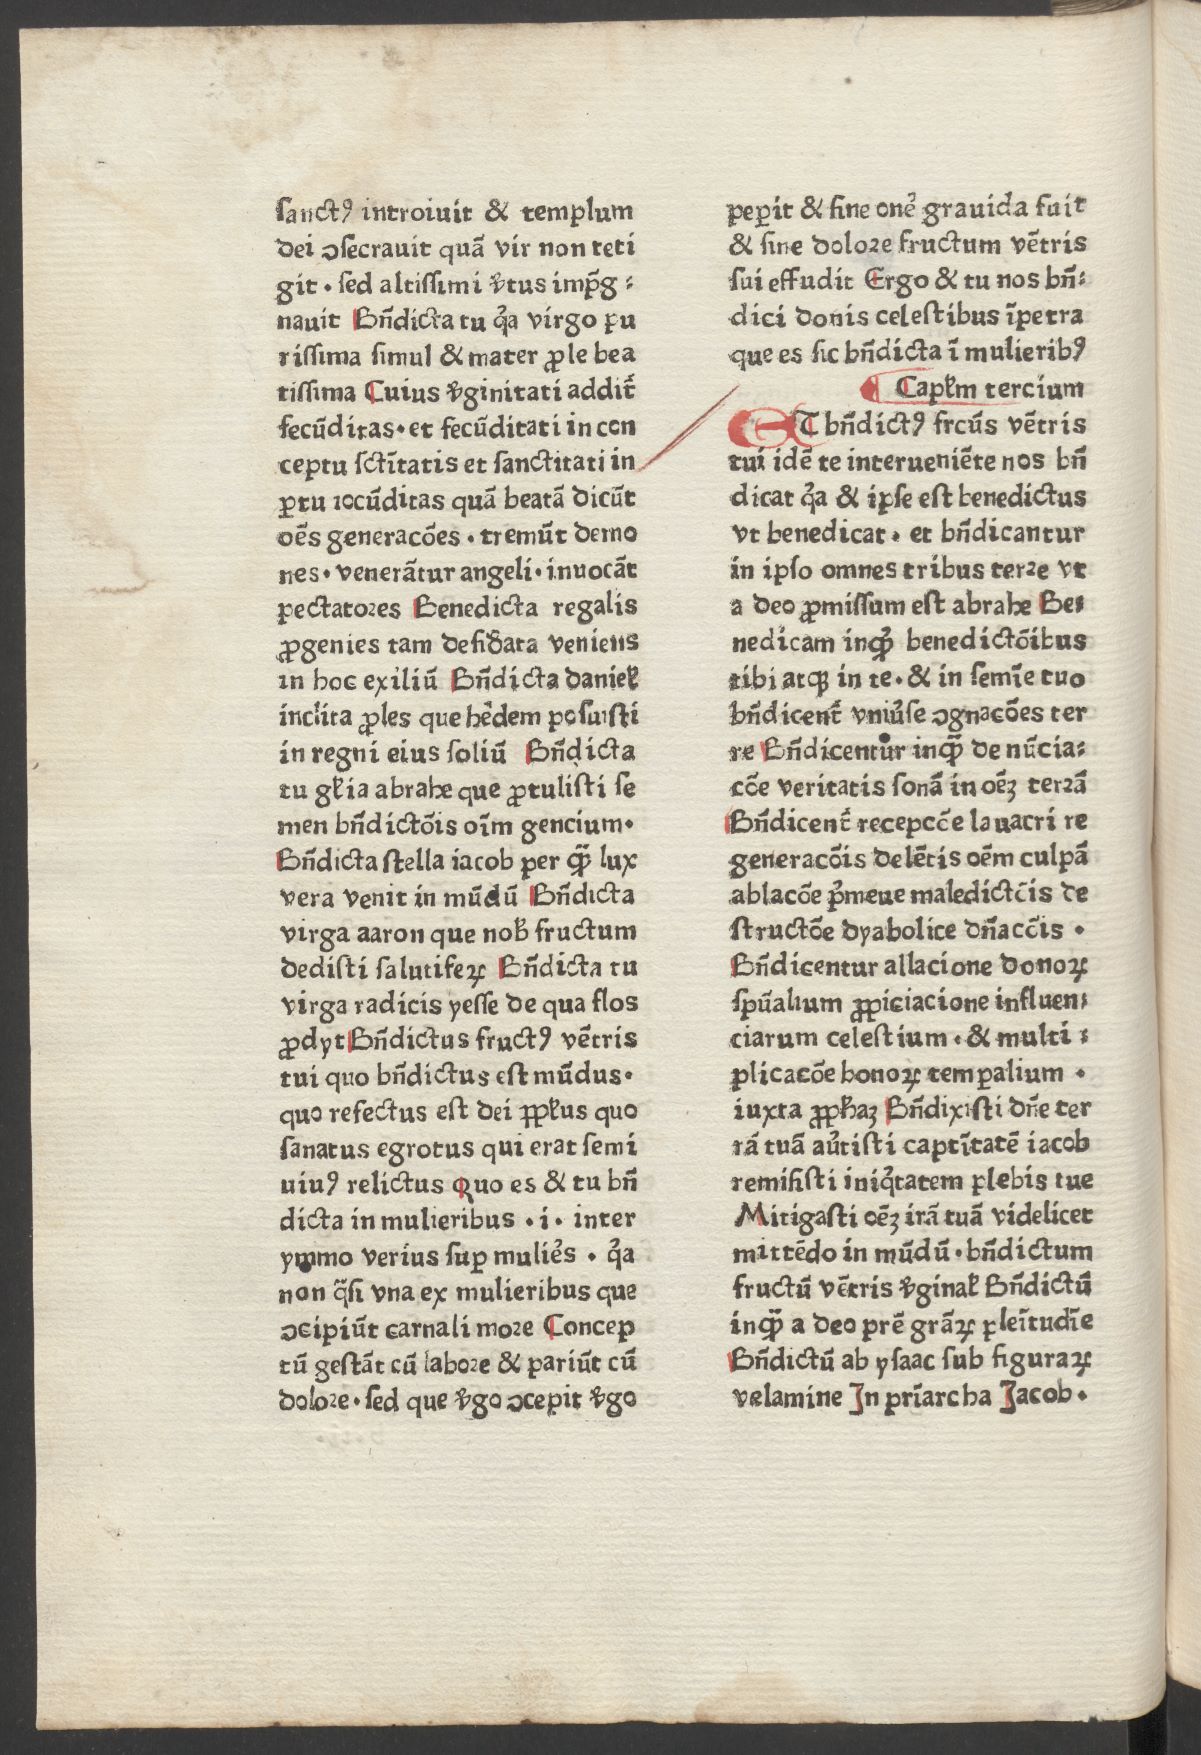 sanctꝰ introiuit & templum
dei ↄsecrauit quā vir non teti
git · sed altissimi v̓tus imp̄g⸗
nauit Bn̄dicta tu q̓a virgo pu
rissima simul & mater ꝓle bea
tissima Cuius v̓ginitati addit̄
fecūditas · et fecūditati in con
ceptu sctītatis et sanctitati in
ꝑtu iocūditas quā beatā dicūt
oēs generacōes · tremūt demo
nes · venerātur angeli · inuocāt
pectatores Benedicta regalis
ꝓgenies tam desiđata veniens
in hoc exiliū Bn̄dicta danieł
inclita ꝓles que hēdem posuisti
in regni eius soliū Bn̄dicta
tu głia abrahe que ꝓtulisti se
men bn̄dictōis oīm gencium ·
Bn̄dicta stella iacob per qꝫ̄ lux
vera venit in mūdū Bn̄dicta
virga aaron que nob̵ fructum
dedisti salutifeꝝ Bn̄dicta tu
virga radicis yesse de qua flos
ꝓdyt Bn̄dictus fructꝰ vētris
tui quo bn̄dictus est mūdus ·
quo refectus est dei ꝓpłus quo
sanatus egrotus qui erat semi
uiuꝰ relictus Quo es & tu bn̄
dicta in mulieribus · i · inter
ymmo verius suꝑ mulie᷒s · q̓a
non q̄si vna ex mulieribus que
ↄcipiūt carnali more Concep
tū gestāt cū labore & pariūt cū
dolore · sed que v̓go ↄcepit v̓go
peperit & sine one᷒ grauida fuit
& sine dolore fructum vētris
sui effudit Ergo & tu nos bn̄⸗
dici donis celestibus īpetra
que es sic bn̄dicta ī mulieribꝰ
Capłm tercium
ET bn̄dictꝰ frcūs vētris
tui idē te interueniēte nos bn̄
dicat q̓a & ipse est benedictus
vt benedicat · et bn̄dicantur
in ipso omnes tribus terre vt
a deo ꝓmissum est abrahe Be⸗
nedicam inqꝫ̓ benedictōibus
tibi atqꝫ in te · & in semīe tuo
bn̄dicent̄ vniu̓se ↄgnacōes ter
re Bn̄dicentur inqꝫ̄ de nūcia⸗
cōe veritatis sonā in oēꝫ terrā
Bn̄dicent̄ recepcōe lauacri re
generacōis delētis oēm culpā
ablacōe p̓meue maledictōis de
structōe dyabolice dn̄accōis ·
Bn̄dicentur allacione donoꝝ
spūalium ꝓpiciacione influen⸗
ciarum celestium · & multi⸗
plicacōe bonoꝝ temꝑalium ·
iuxta ꝓph̵aꝫ Bn̄dixisti dn̄e ter
rā tuā au̓tisti captītatē iacob
remisisti iniq̓tatem plebis tue
Mitigasti oēꝫ irā tuā videlicet
mittēdo in mūdū · bn̄dictum
fructū vētris v̓ginał Bn̄dictū
inqꝫ̄ a deo prē grāꝝ pleītudīe
Bn̄dictū ab ysaac sub figuraꝝ
velamine In prīarcha Jacob ·